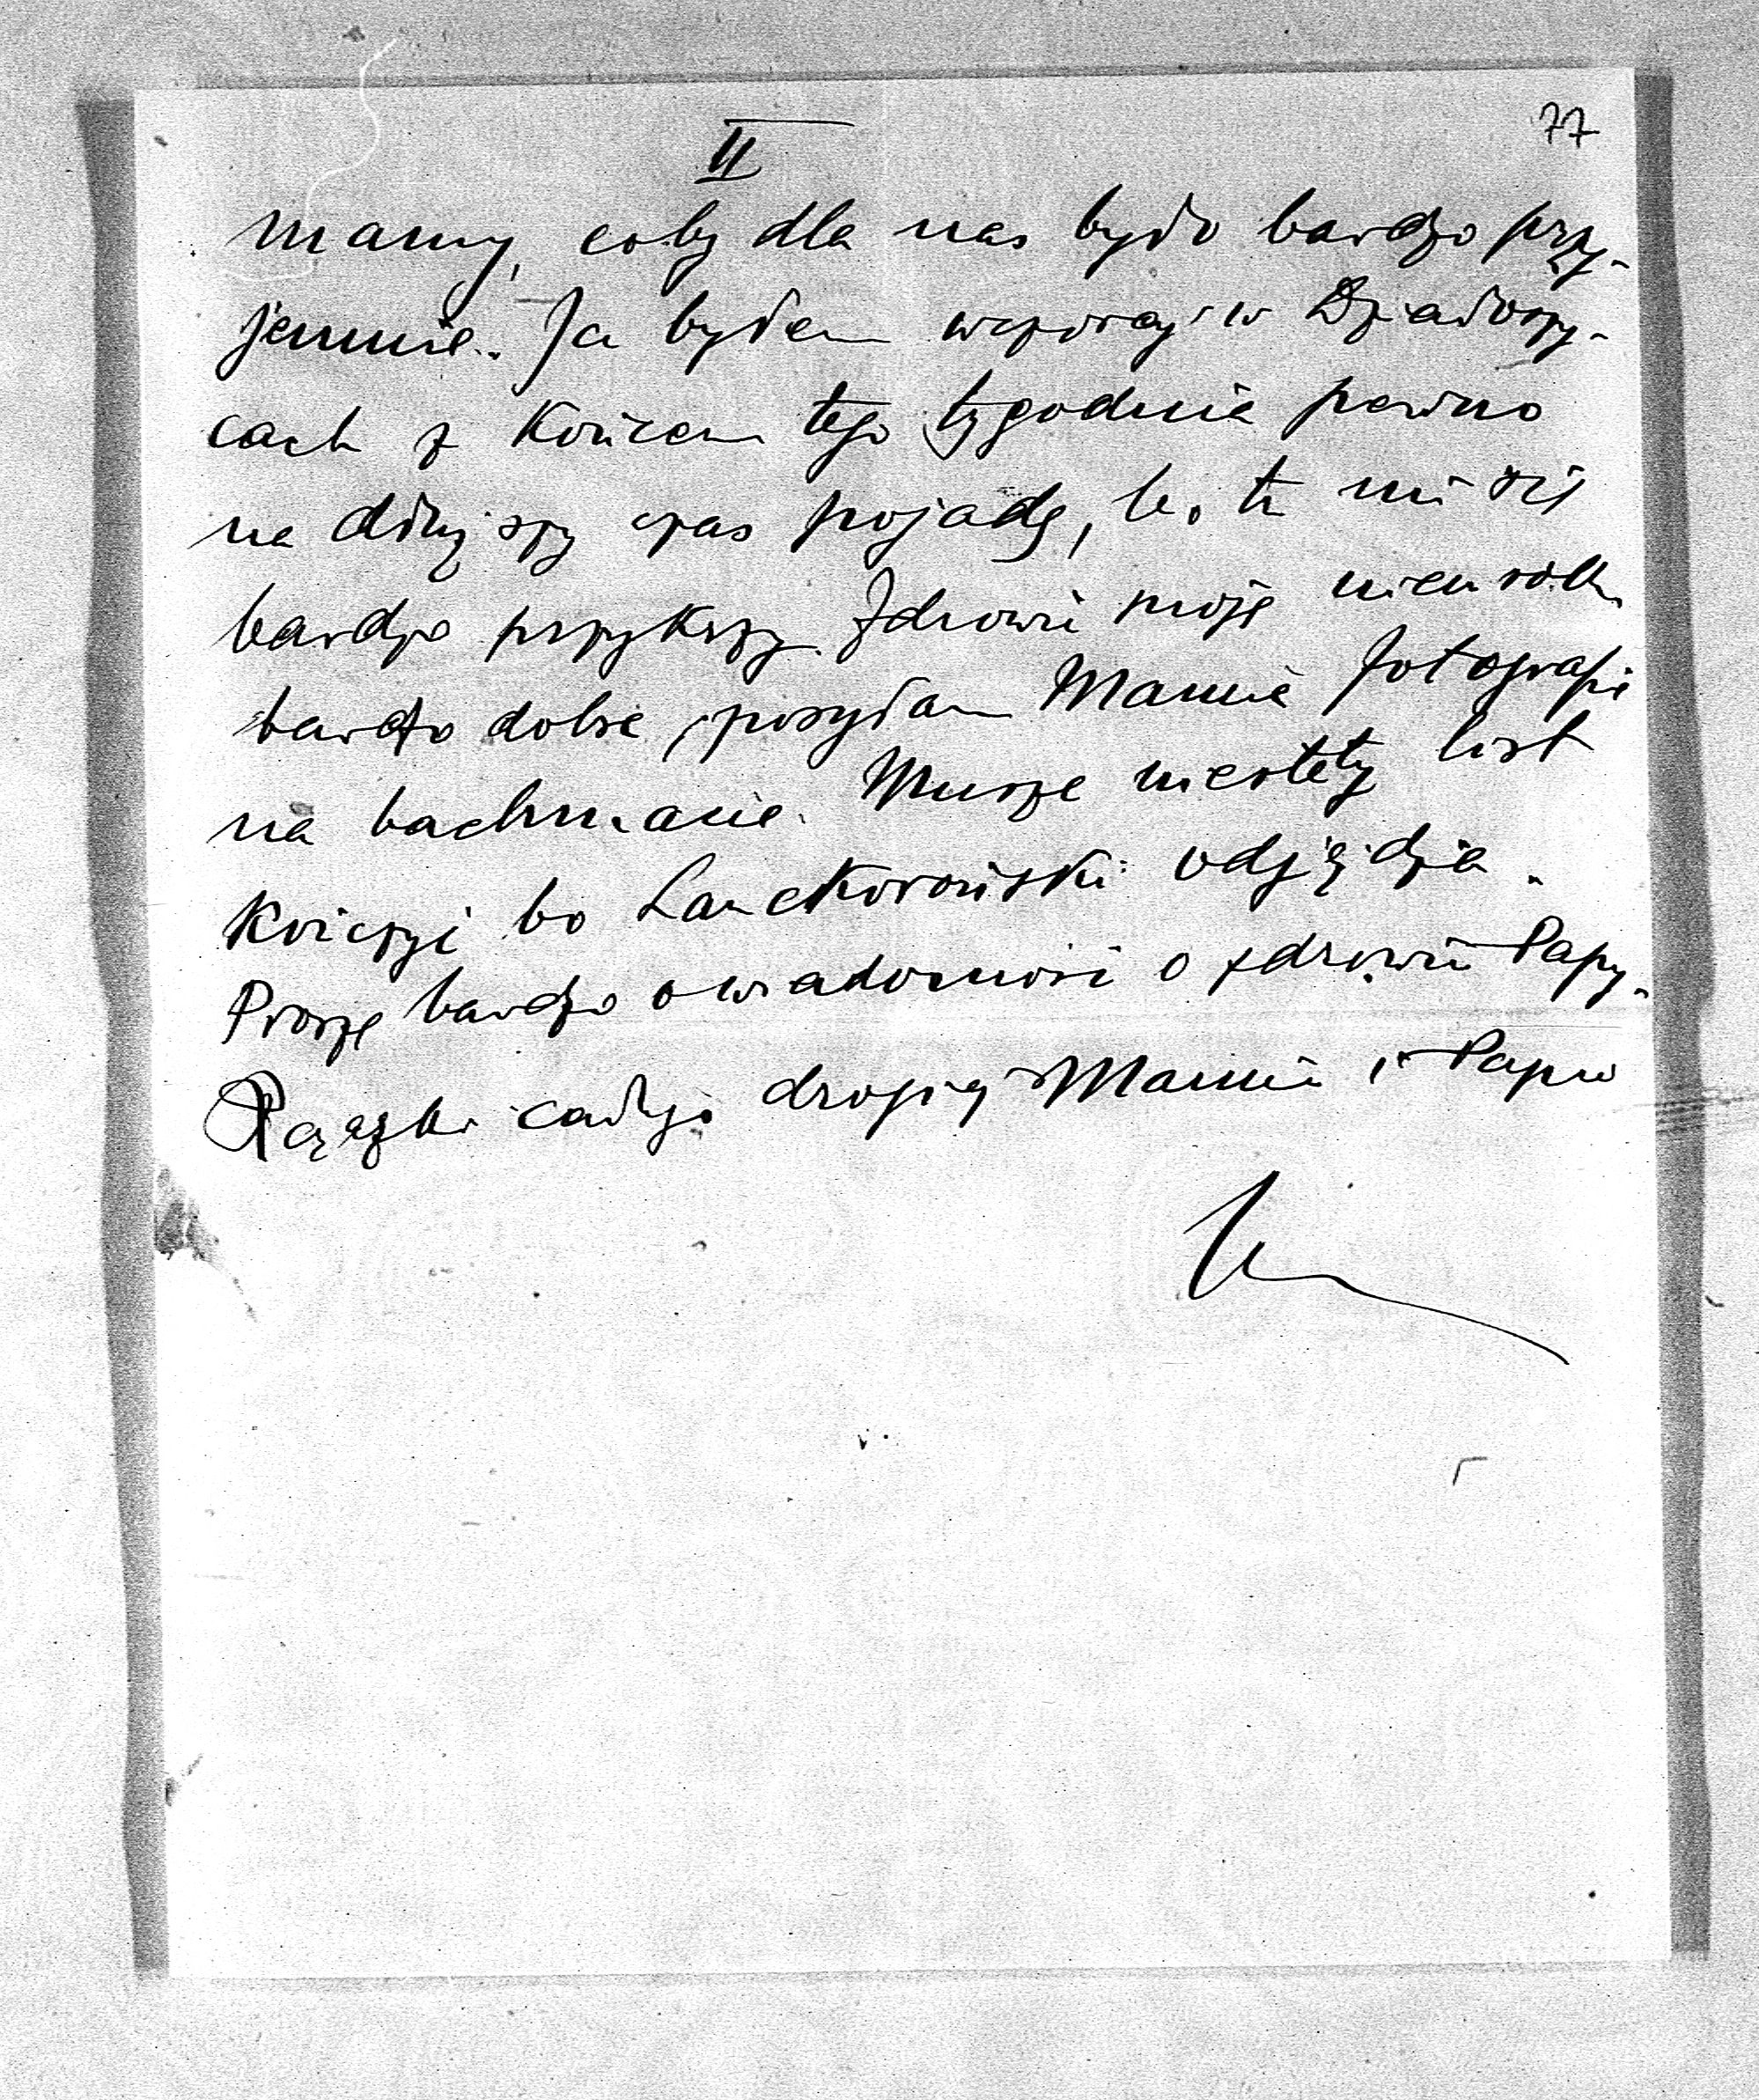 77
II
mamy, coby dla nas było bardzo przy-
jemnie. Ja byłem wczoraj w Działoszy-
cach z końcem tego tygodnia pewno
na dłuższy czas pojadę, bo tu mi się
bardzo przykrzy. Zdrowie moje
bardzo dobre, posyłam Mamie fotografie
na bachmacie. Muszę niestety list
kończyć bo Lanckoroński odjeżdża.
Proszę bardzo o wiadomości o zdrowiu Papy.
Rączki całuję drogiej Mamie i Papie